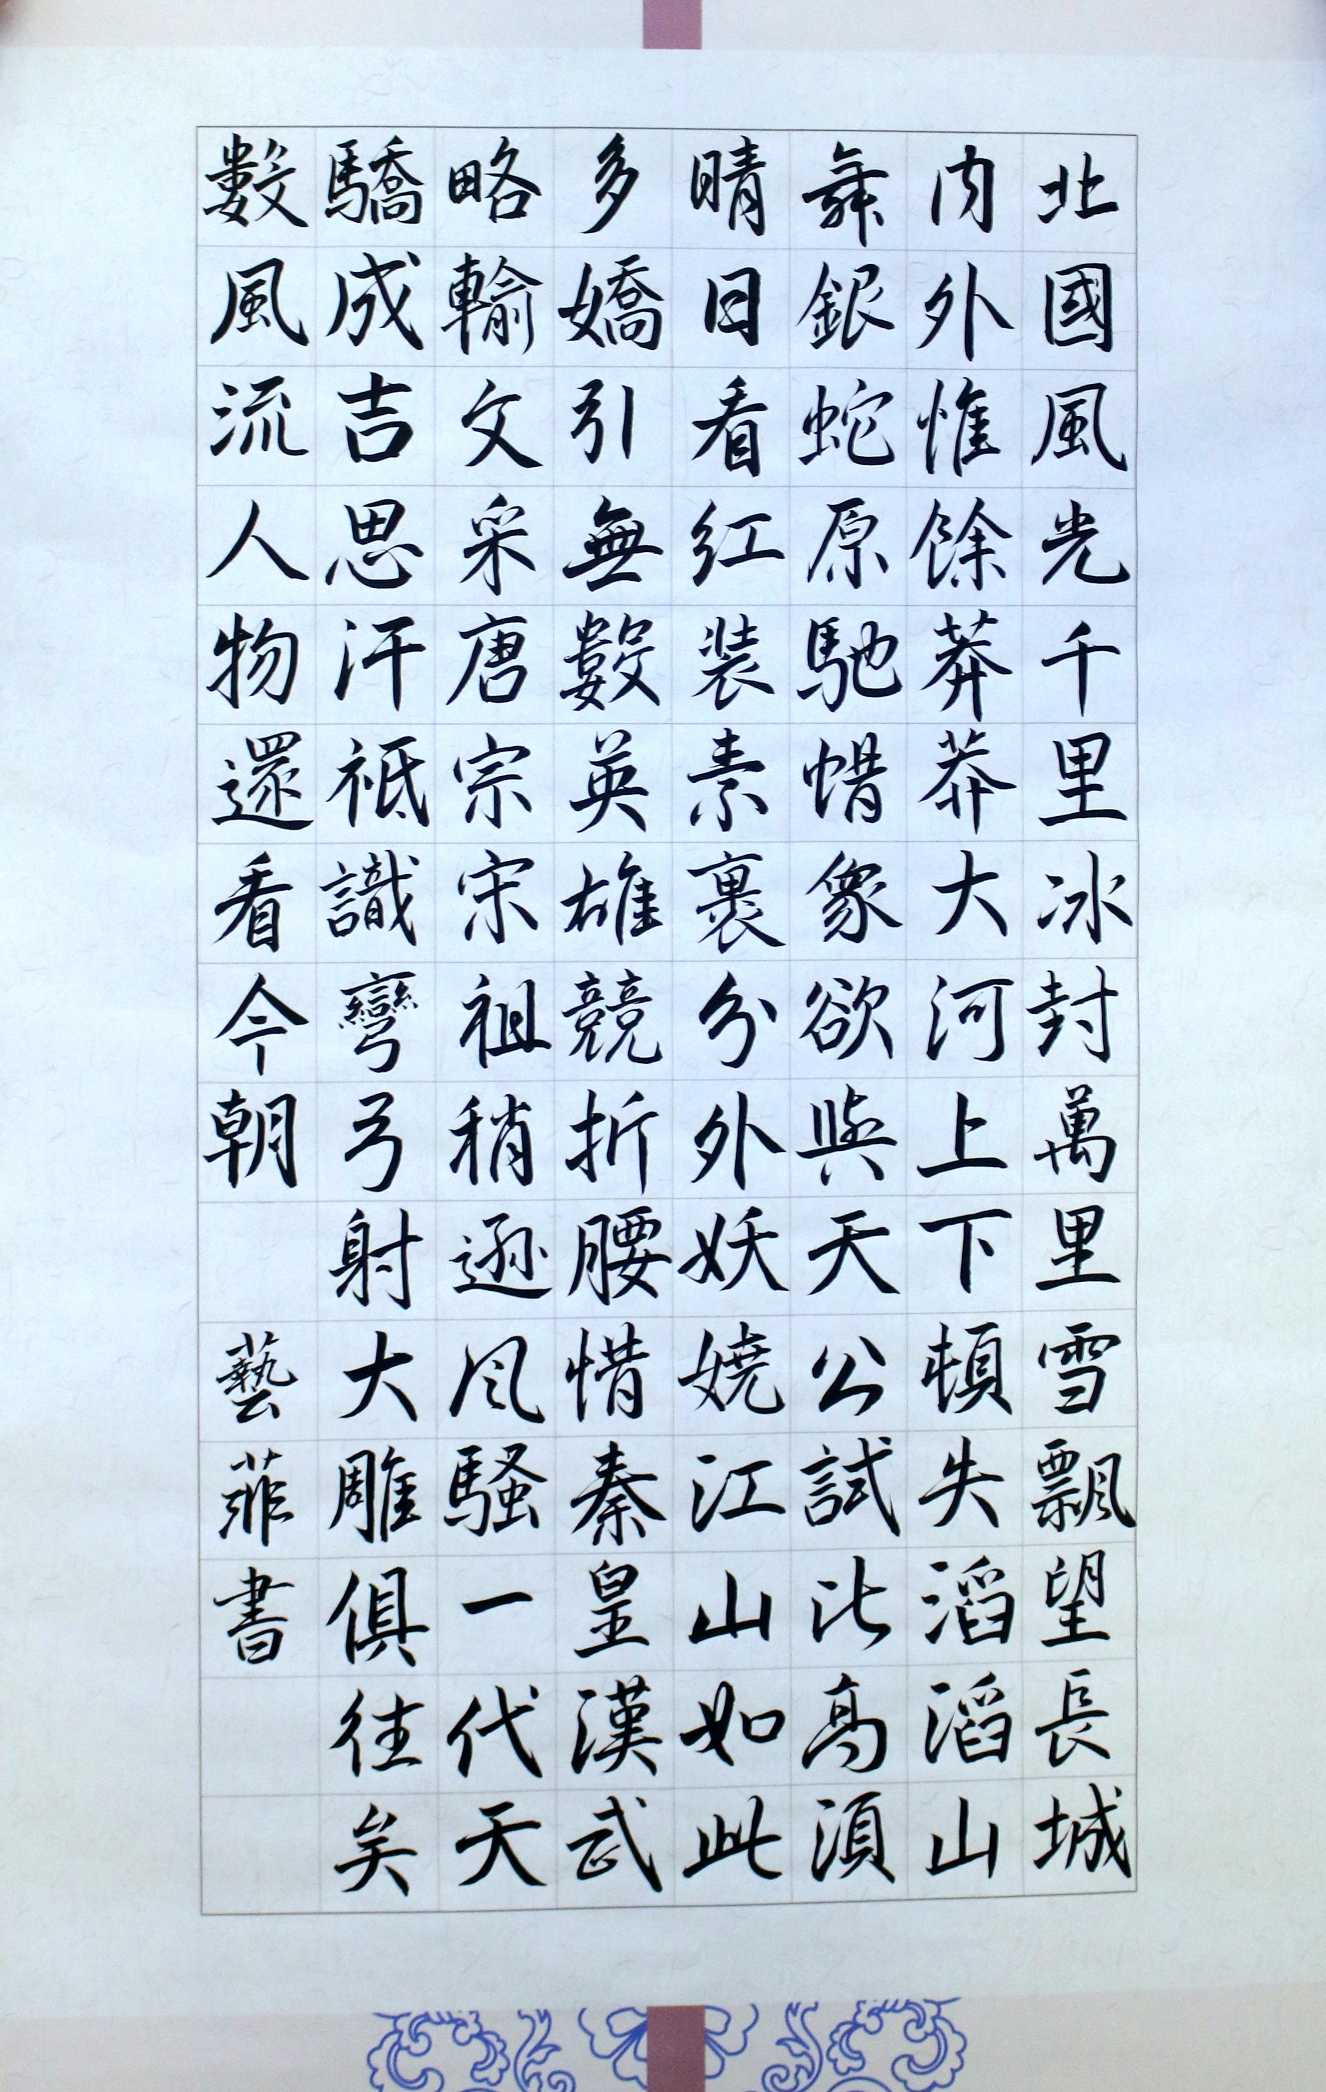 北國風光千里冰封萬里雪飄望長城
內外惟餘莽莽大河上下頓失滔滔山
舞銀蛇原馳蜡象欲與天公試比高須
晴日看紅裝素裹分外妖嬈江山如此
多嬌引無數英雄競折腰惜秦皇漢武
略輸文采唐宗宋祖稍遜风騷一代天
驕成吉思汗祗識彎弓射大雕俱往矣
數風流人物還看今朝 藝菲書